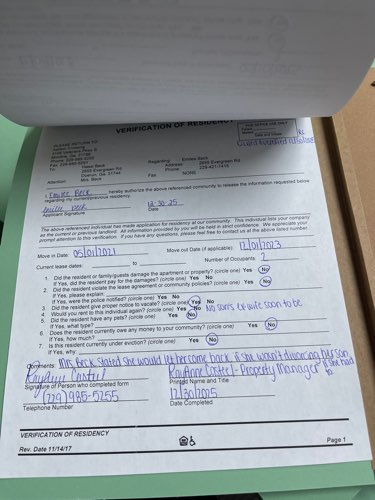 VERIFICATION OF RESIDENCY
OFFICE USE ONLY
PLEASE RETURN TO:
Phone: 229-985-5255
To: Hazel Beck
2695 Evergreen Rd
Doerun, GA 31744
Attention: Mrs. Beck
Regarding: Emilee Beck
Address: 2695 Evergreen Rd
Phone: 229-421-7419
Fax: NONE
I, Emilee Beck hereby authorize the above referenced community to release the information requested below
regarding my current/previous residency.
Emilee Beck 12-30-25
Applicant Signature Date
The above referenced individual has made application for residency at our community. This individual lists your company
as the current or previous landlord. All information provided by you will be held in strict confidence. We appreciate your
prompt attention to this verification. If you have any questions, please feel free to contact us at the above listed number.
Move in Date: 05/01/2021 Move out Date (if applicable): 12/01/2023
Current lease dates: to Number of Occupants: 2
1. Did the resident or family/guests damage the apartment or property? (circle one) Yes No
If Yes, did the resident pay for the damages? (circle one) Yes No
2. Did the resident violate the lease agreement or community policies? (circle one) Yes No
If Yes, please explain:
If Yes, were the police notified? (circle one) Yes No
3. Did the resident give proper notice to vacate? (circle one) Yes No
4. Would you rent to this individual again? (circle one) Yes No NO son's ex wife soon to be
5. Did the resident have any pets? (circle one) Yes No
If Yes, what type?
6. Does the resident currently owe any money to your community? (circle one) Yes No
If Yes, how much?
7. Is this resident currently under eviction? (circle one) Yes No
If Yes, why:
Comments: Mrs Beck stated she would let her come back if she wasn't divorcing her son
if she had to.
RayAnne Property Manager
Signature of Person who completed form Printed Name and Title
(229) 985-5255 12/30/2025
Telephone Number Date Completed
VERIFICATION OF RESIDENCY
Rev. Date 11/14/17 Page 1